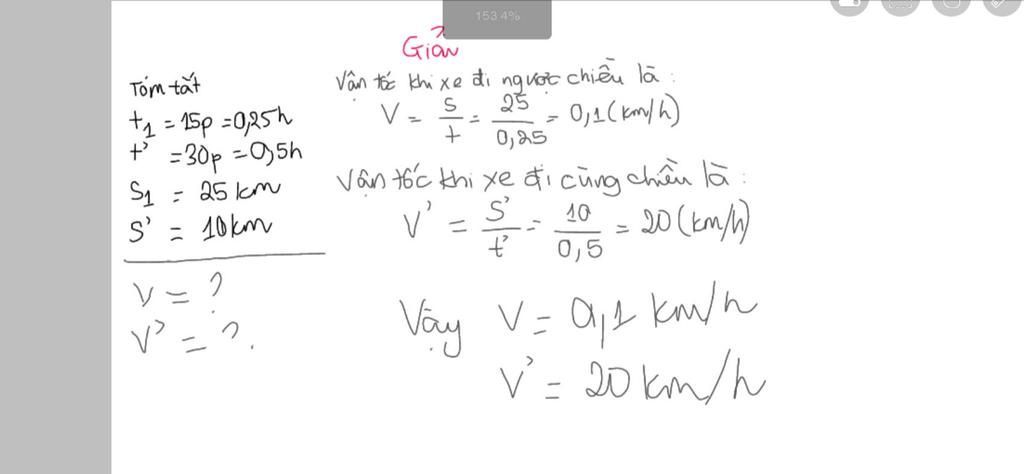 153.4%
Giải
Tóm tắt
t₁ = 15p = 0,25h
t' = 30p = 0,5h
S₁ = 25 km
S' = 10km
V = ?
V' = ?.
Vận tốc khi xe đi ngược chiều là :
V = S/t = 25/0,25 = 0,1 (km/h)
Vận tốc khi xe đi cùng chiều là :
V' = S'/t' = 10/0,5 = 20 (km/h)
Vậy V = 0,1 km/h
V' = 20 km/h